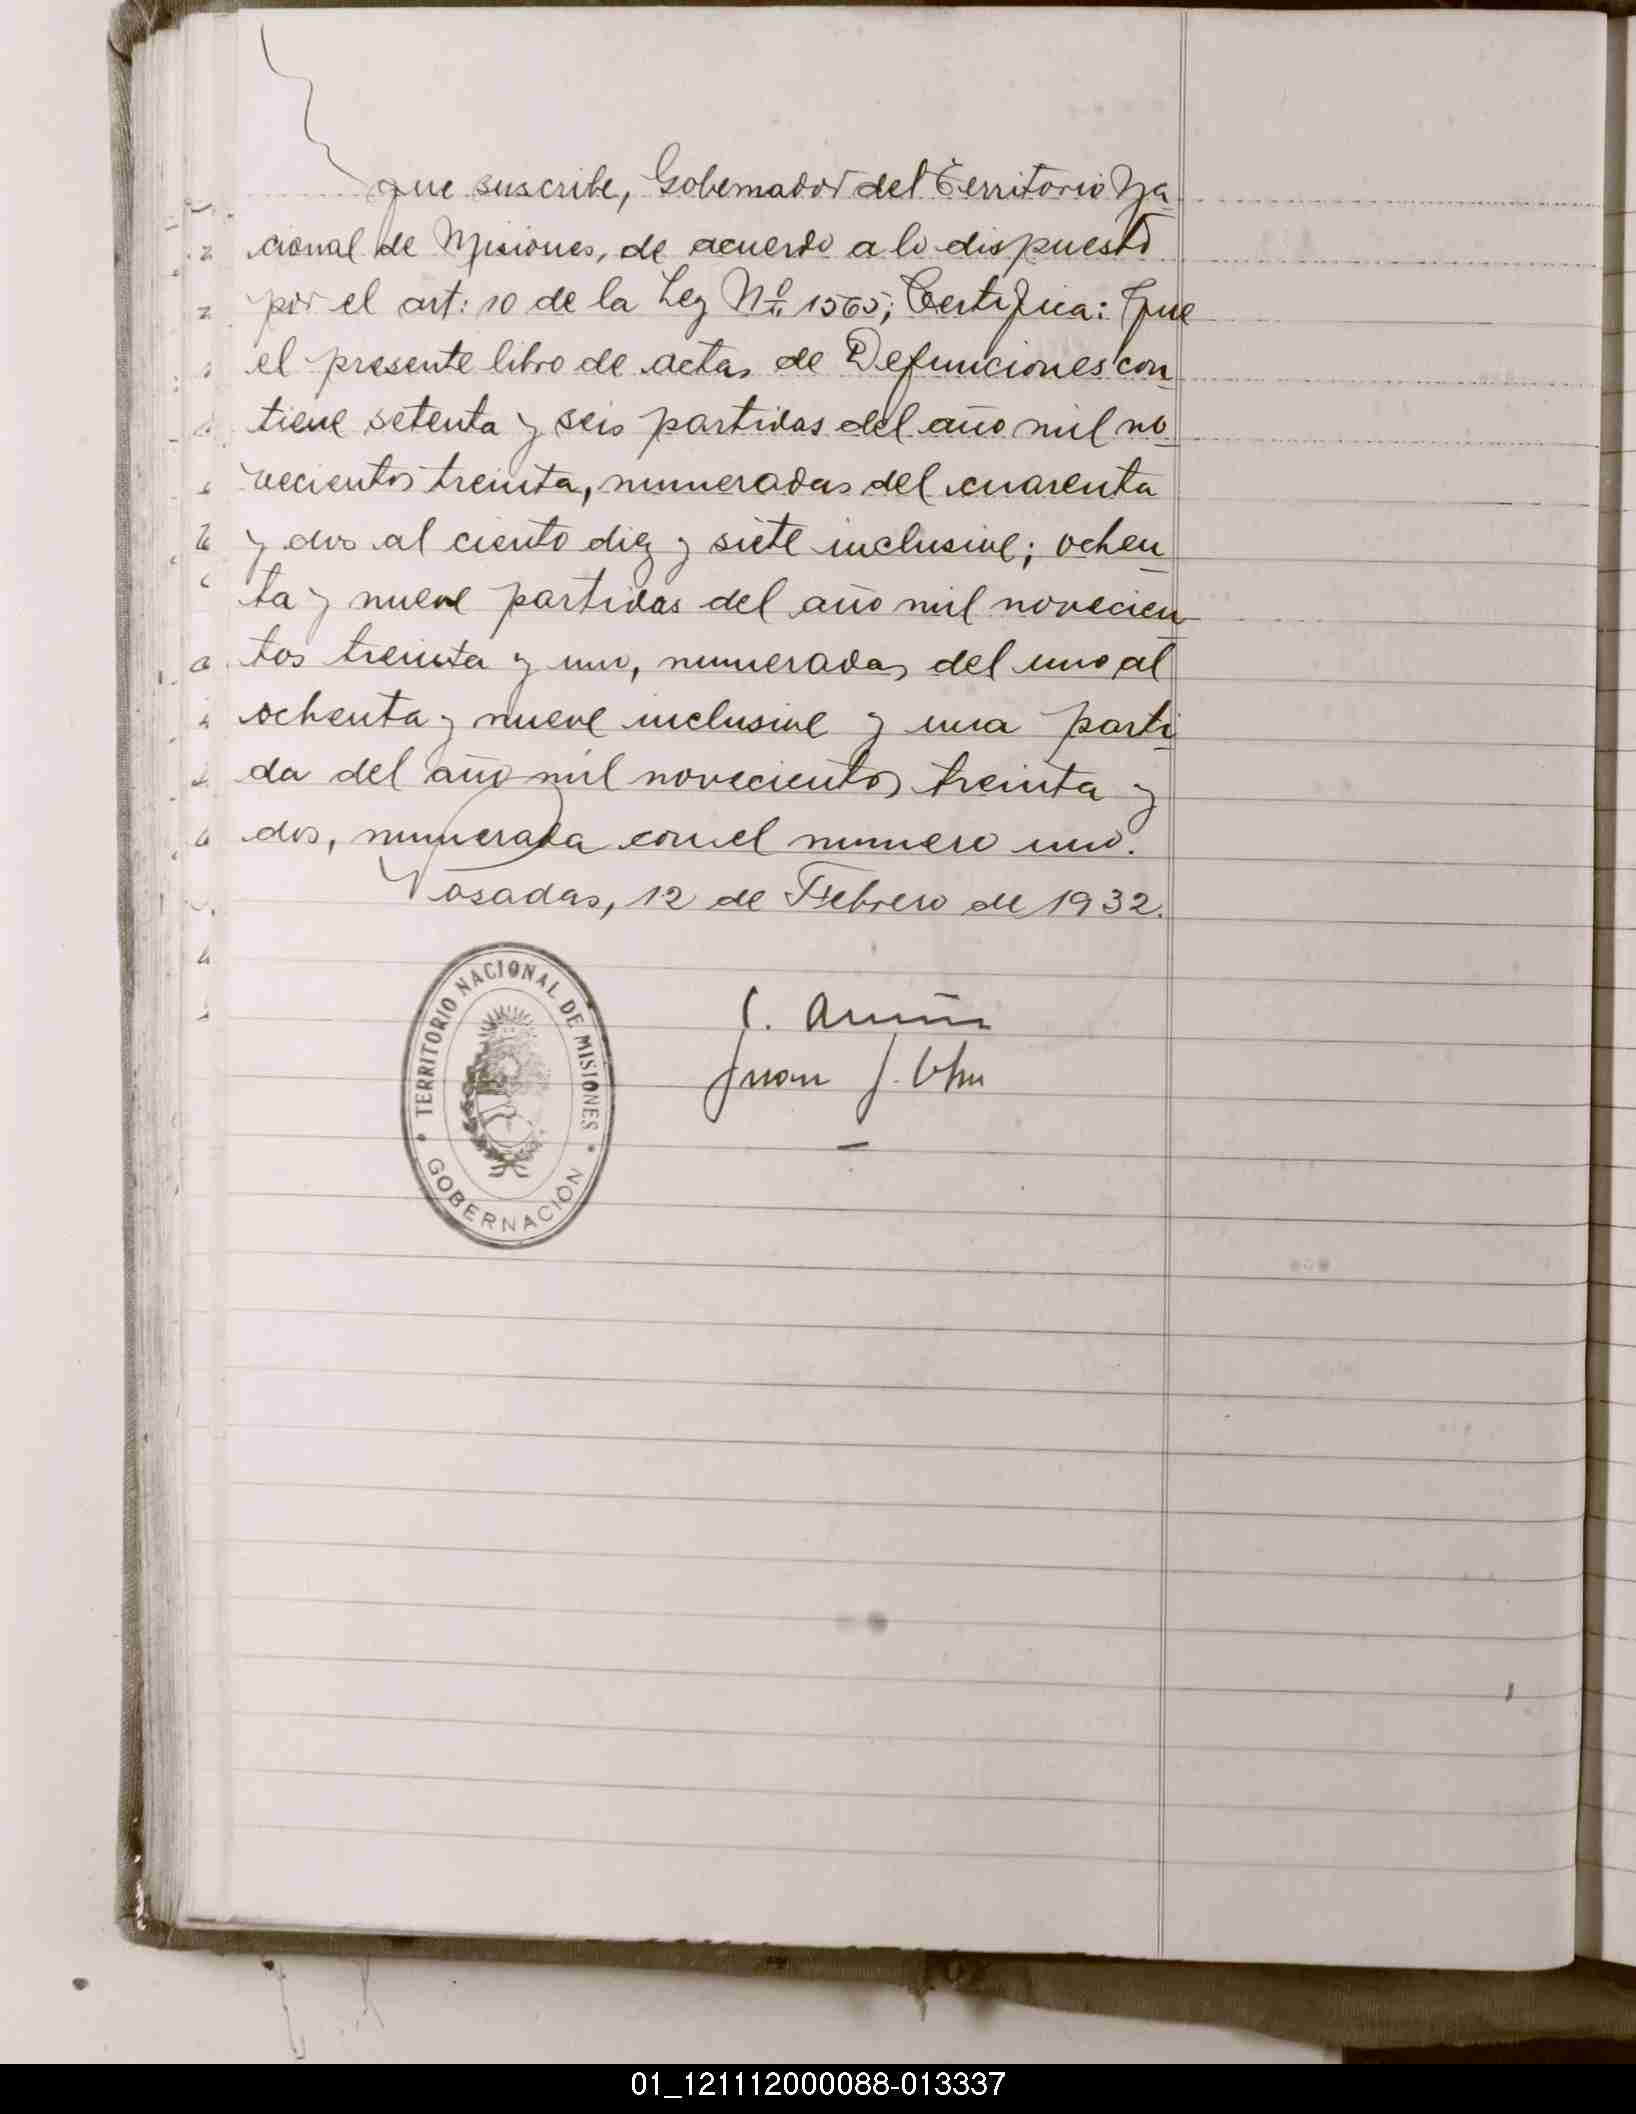 que suscribe, Gobernador del Territorio Na-
cional de Misiones, de acuerdo a lo dispuesto
por el art: 10 de la Ley Nº 1565; Certifica: Que
el presente libro de actas de Defunciones con-
tiene setenta y seis partidas del año mil no-
vecientos treinta, numeradas del cuarenta
y dos al ciento diez y siete inclusive; ochen-
ta y nueve partidas del año mil novecien-
tos treinta y uno, numeradas del uno al
ochenta y nueve inclusive y una parti-
da del año mil novecientos treinta y
dos, numerada con el numero uno.
Posadas, 12 de Febrero de 1932.
TERRITORIO NACIONAL DE MISIONES
GOBERNACIÓN
Juan J.
01_121112000088-013337